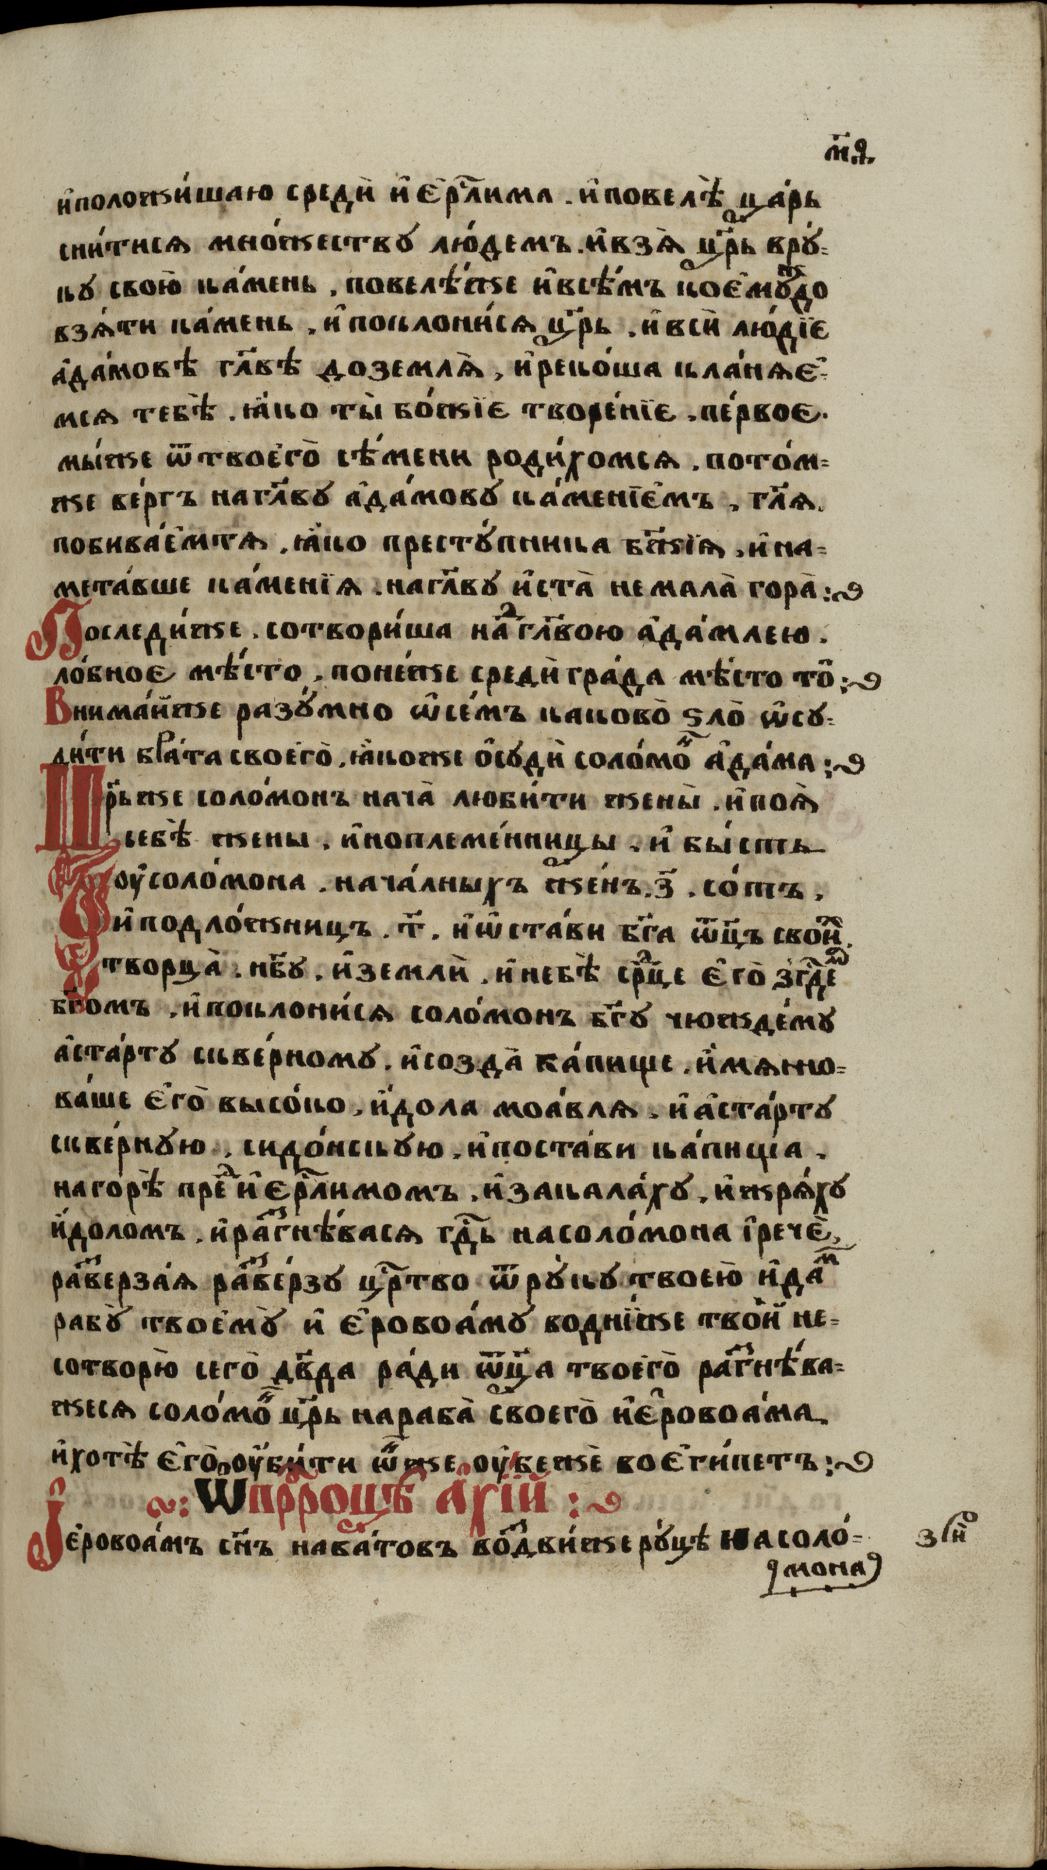 м҃ѳ.
и҆положи́шаю среди̑ и҆ є҆рⷭ҇лима . и҆повелѣ̀ ца́рь
сни́тися мно́жеству лю́демъ . и҆взѧ̀ цр҃ь вру́-
ку свою̀ ка́мень , повелѣ́же и҆всѣ́мъ кое҆мꙋждо
взѧ́ти ка́мень , и҆поклони́сѧ цр҃ь . и҆вси̑ лю́дїє
а҆да́мовѣ гл҃вѣ доземлѧ̀ , и҆реко́ша кла́нѧє-
мсѧ тебѣ̀ . ꙗ҆ко ты̀ бо́жїє творе́нїє . пе́рвоє .
мы́же ѿтвоегѡ̀ сѣ́мени роди́хомсѧ . пото́м-
же ве́ргъ нагл҃ву а҆да́мову ка́менїємъ , гл҃ѧ .
побива́ємтѧ , ꙗ҆ко престу́пника бж҃їѧ , и҆на-
мета́вше ка́менїѧ . нагл҃ву и҆ста̀ немала̀ гора̀ :
Последи́же . сотвори́ша наⷣгл҃вою а҆да́млею .
ло́бноє мѣ́сто , поне́же среди̑ гра́да мѣ́сто то̑ :
Внима́йже разу́мно ѡ҆се́мъ каково̀ ѕло̀ ѡ҆су-
ди́ти бра́та своего̀ . ꙗ҆коже о҆суди̑ соломоⷩ҇ а҆да́ма :
Цр҃ьже соло́монъ нача̀ люби́ти жены̀ . и҆поѧ̀
себѣ̀ жены , и҆ноплеме́нницы . и҆ бы́сть
оу҆соло́мона . нача́лныхъ же́нъ . з҃ . со́тъ ,
и҆подло́жницъ . т҃ . и҆ѡ҆ста́ви бг҃а ѿц҃ъ свои́ⷯ
творца̀ . нб҃у . и҆земли̑ . и҆небѣ̀ срⷣце є҆го̀ з҆гдⷭ҇еⷨ
бг҃омъ , и҆поклони́сѧ соло́монъ бг҃у чюжде́му
а҆ста́рту скве́рному . и҆созда̀ ка́пище . и҆мѧно-
ва́ше є҆го̀ высо́ко , и҆́дола моа́влѧ . и҆ а҆ста́рту
скве́рную , сидо́нскую . и҆поста́ви ка́пища .
нагорѣ̀ преⷣ и҆ є҆рⷭ҇лимомъ . и҆закала́ху , и҆жрѧ́ху
и҆́доломъ . и҆раⷥгнѣ́васѧ гдⷭ҇ь насоло́мона і҆рече̑ ,
раⷥверза́ѧ раⷥве́рзу црⷭ҇тво ѿру́ку твоею̀ и҆даⷨ
рабу̀ твоему̀ и҆ є҆ровоа́му воднїи́же твои́й не-
сотворю̀ сего̀ дв҃да ра́ди ѿц҃а твоего̀ раⷥгнѣ́ва-
жесѧ соломоⷩ҇ цр҃ь нараба̀ своего̀ и҆є҆ровоа́ма .
и҆хотѣ̀ є҆го̀ оу҆би́ти ѡ҆́нже оу҆бежѐ воє҆ги́петъ :
Ѡ прⷪ҇роцѣ а҆хі́й :
І҆єровоа́мъ сн҃ъ нава́товъ воⷥдви́же ру́цѣ насоло́-
мона